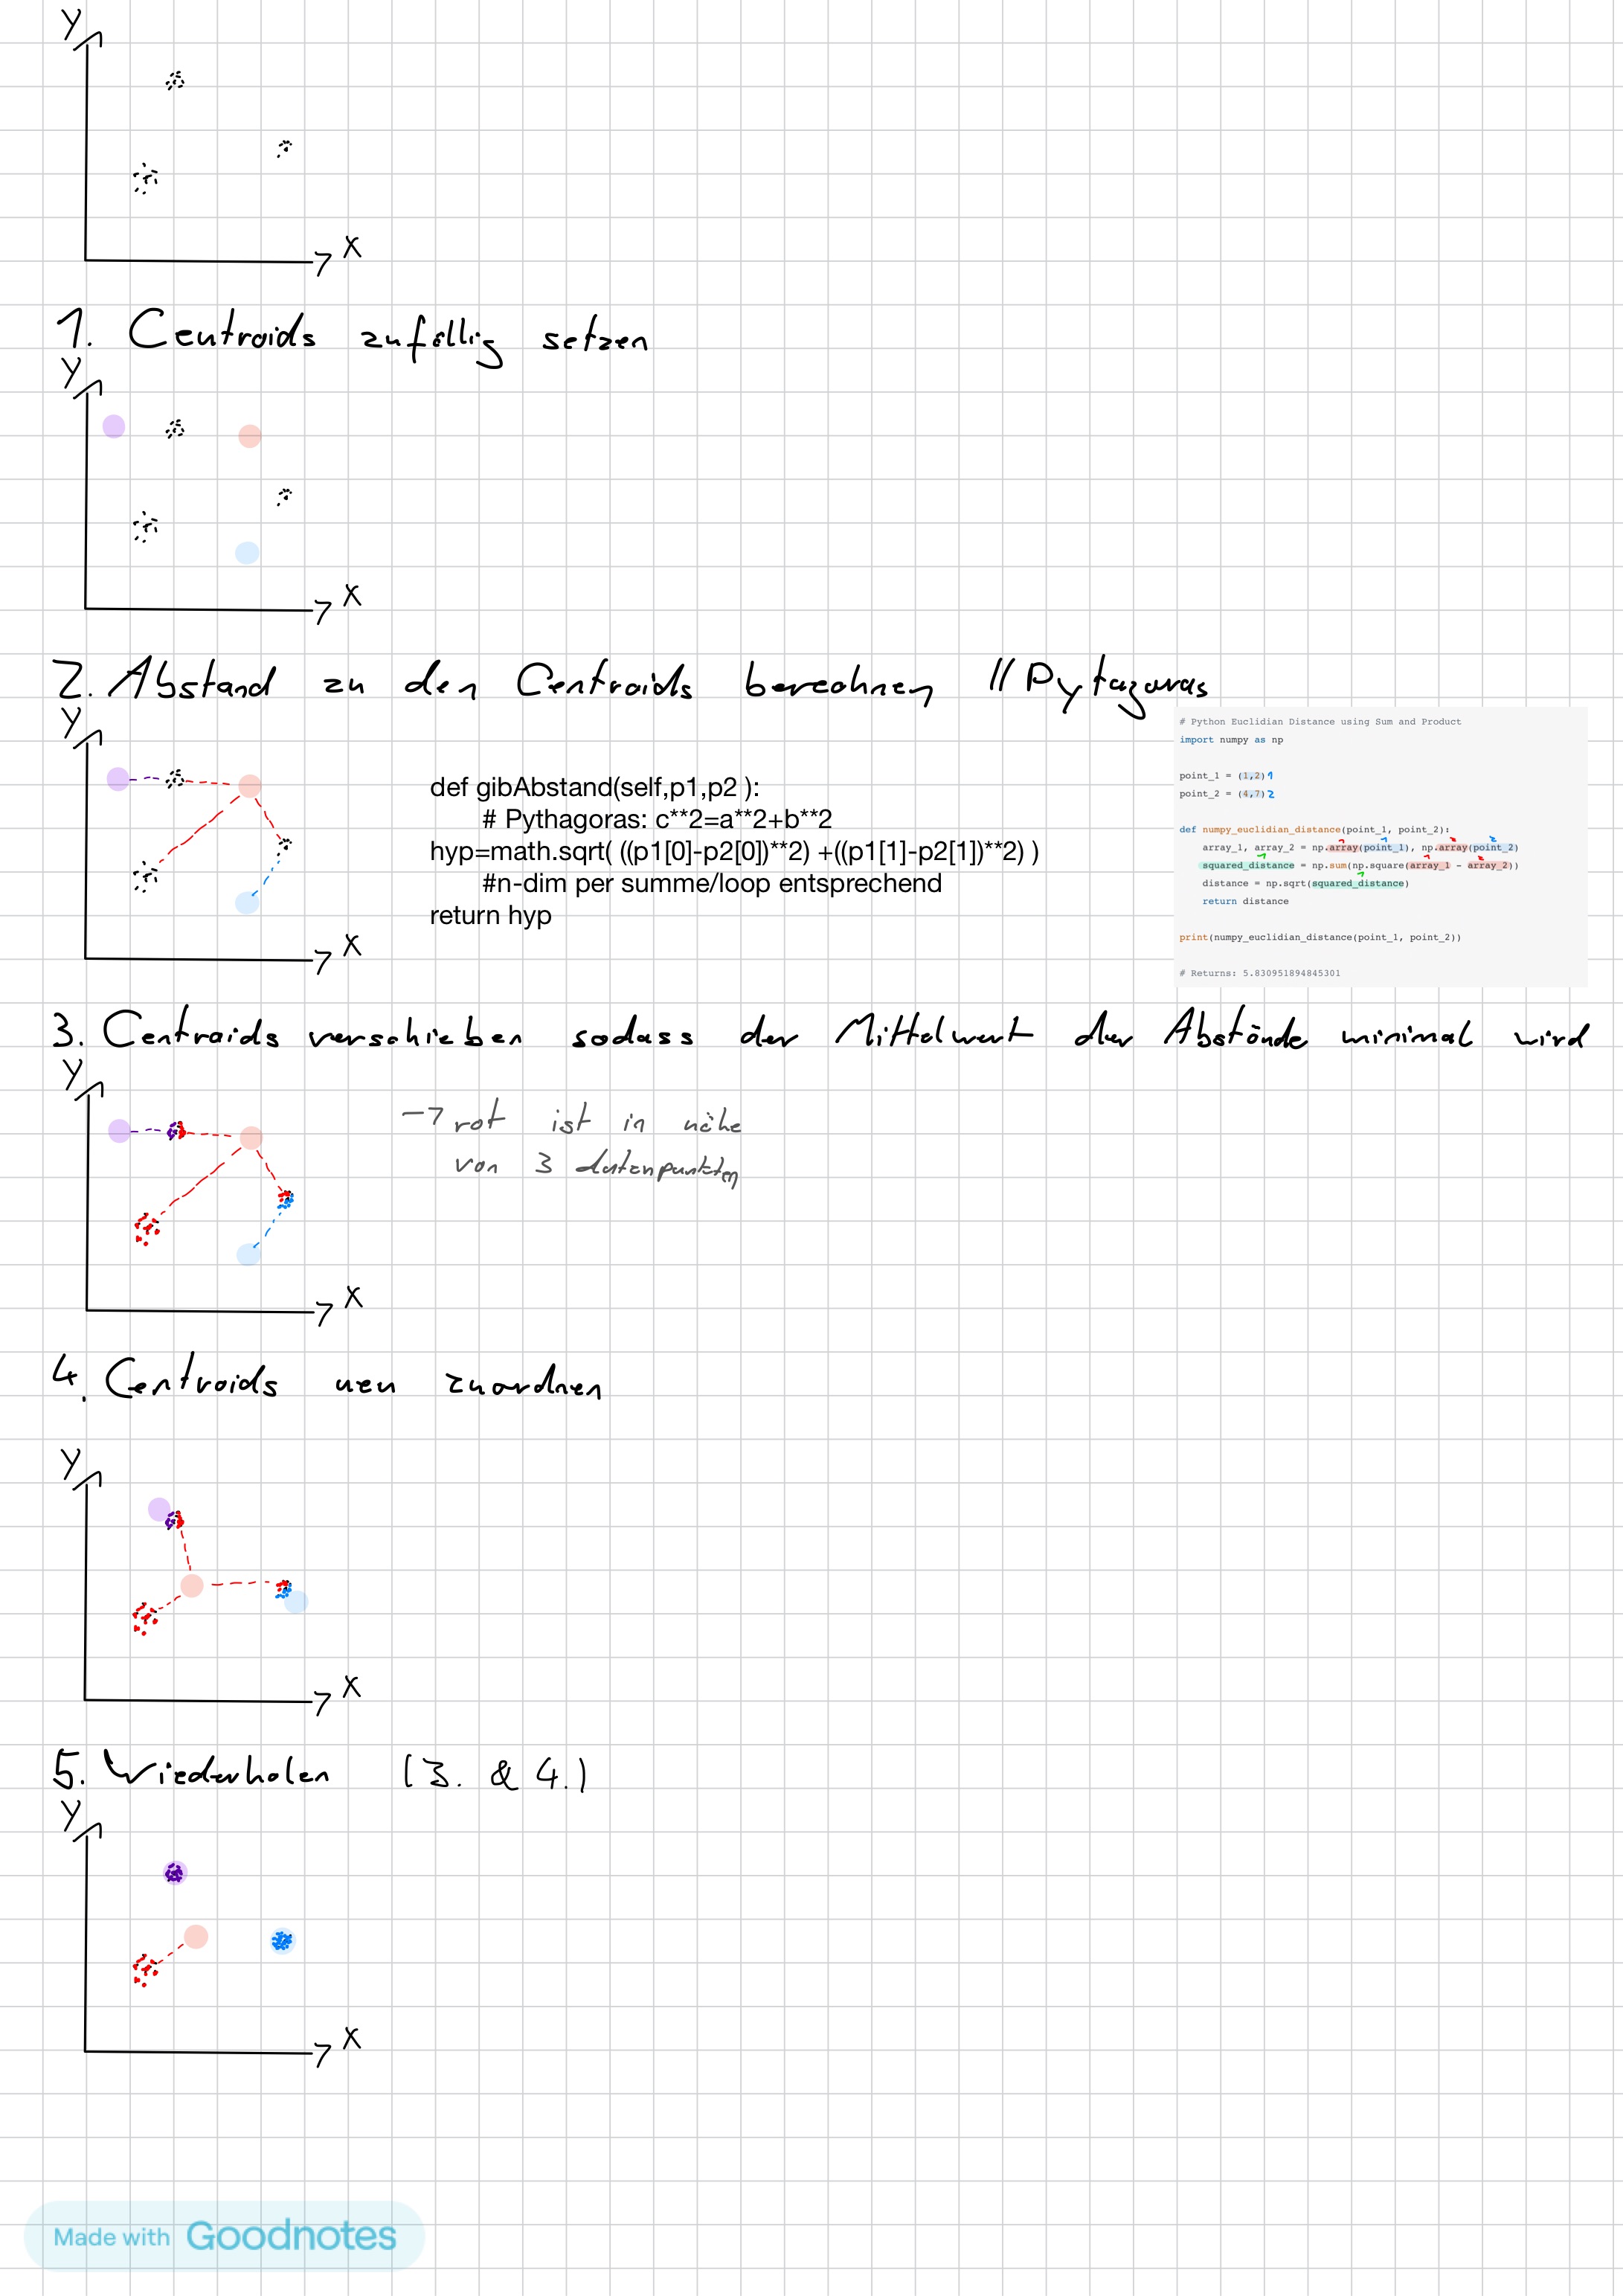 Y
X
1. Centroids zufällig setzen
Y
X
2. Abstand zu den Centroids berechnen //Pytagoras
Y
X
def gibAbstand(self,p1,p2 ):
# Pythagoras: c**2=a**2+b**2
hyp=math.sqrt( ((p1[0]-p2[0])**2) +((p1[1]-p2[1])**2) )
#n-dim per summe/loop entsprechend
return hyp
# Python Euclidian Distance using Sum and Product
import numpy as np
point_1 = (1,2) 1
point_2 = (4,7) 2
def numpy_euclidian_distance(point_1, point_2):
array_1, array_2 = np.array(point_1), np.array(point_2)
squared_distance = np.sum(np.square(array_1 - array_2))
distance = np.sqrt(squared_distance)
return distance
print(numpy_euclidian_distance(point_1, point_2))
# Returns: 5.830951894845301
3. Centroids verschieben sodass der Mittelwert der Abstände minimal wird
Y
X
→ rot ist in nähe
von 3 datenpunkten
4. Centroids neu zuordnen
Y
X
5. Wiederholen (3. & 4.)
Y
X
Made with Goodnotes